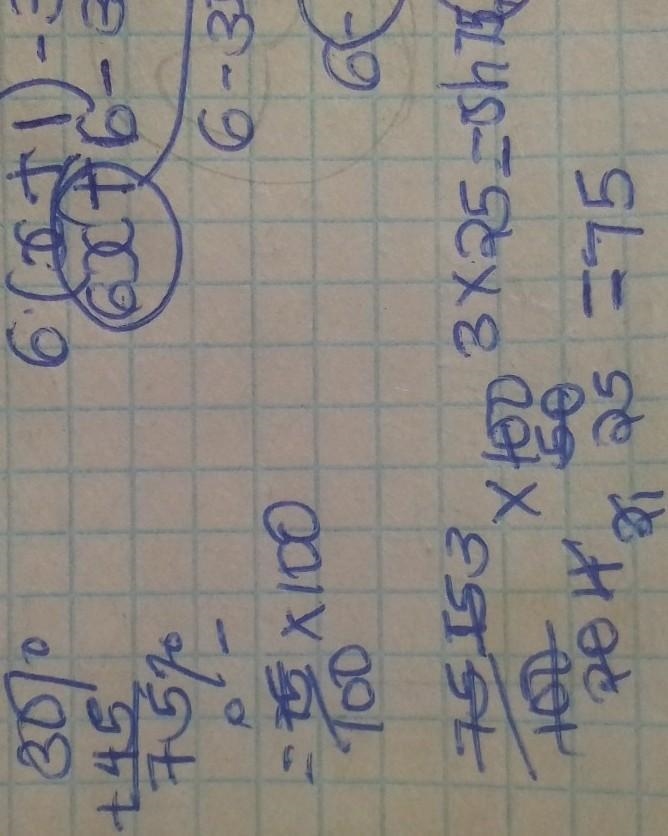 6(x+1)-3
6x+6-3
6-3
6-
30%
+45
75%
= 75/100 × 100
75 15 3 × 100 50 25
100 20 4 1
3 × 25 = sh 75
= 75